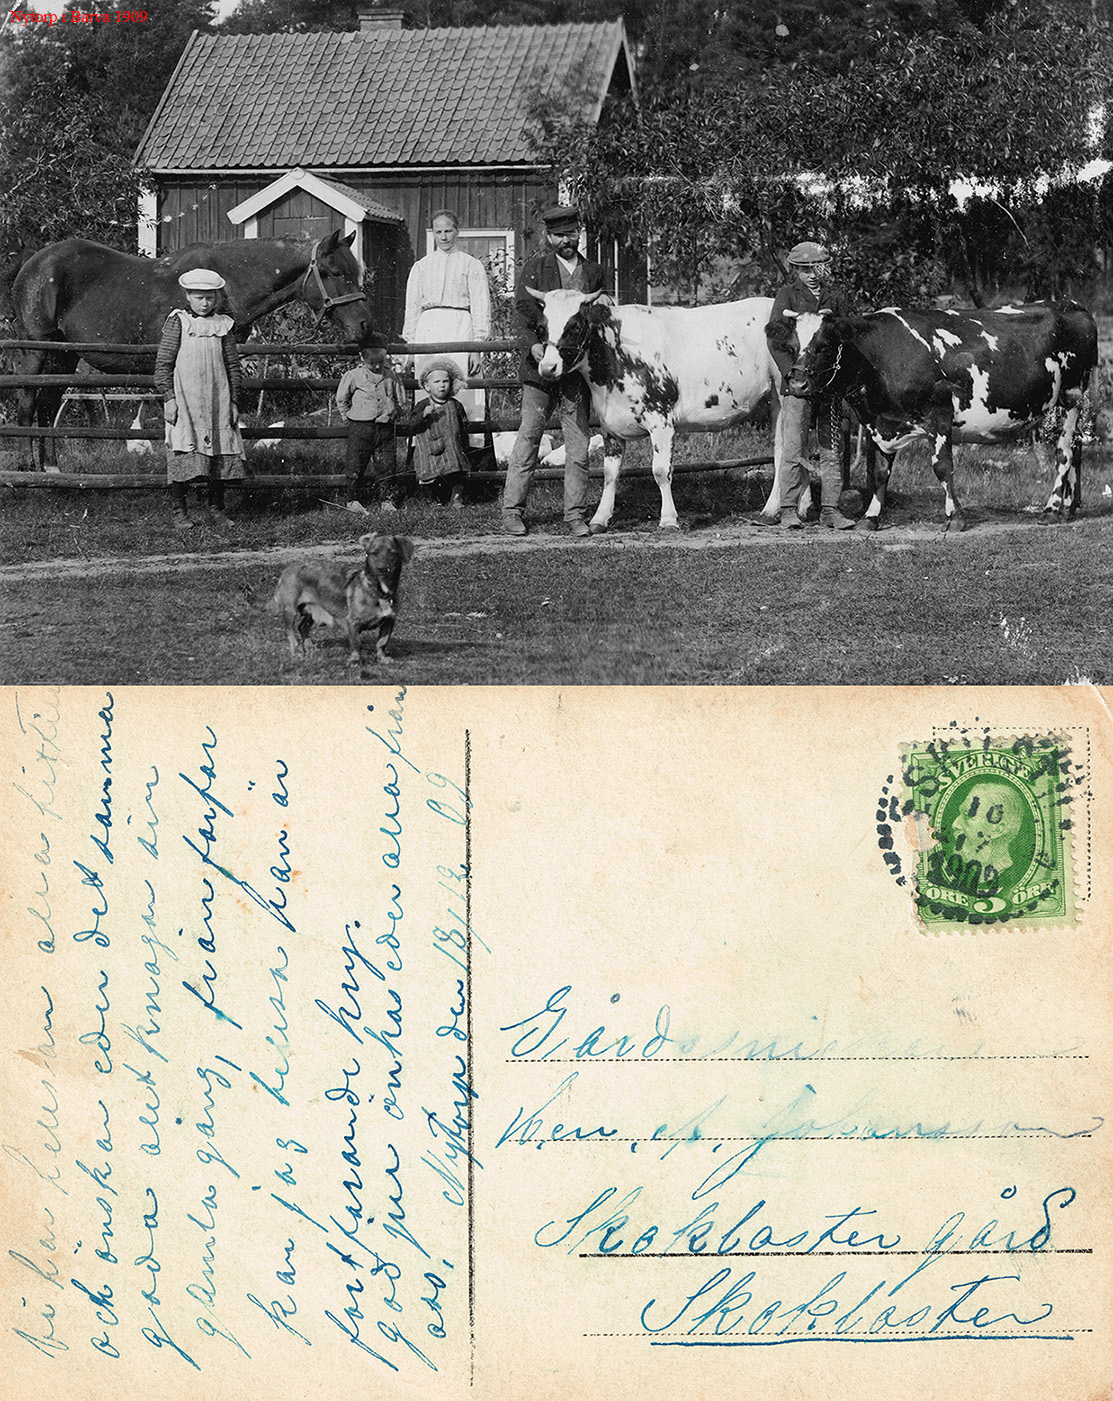 Nytorp i Härva 1909
Vi här hemma är alla
och önskar eder det samma
goda allt knogar sin
gamla gång, från forfar
kan jag helsa han är
fortfarande kry.
god jul önskas eder alla från
oss. Nytorp den 18/12 09
SVERIGE
10
12
1909
ÖRE 5 ÖRE
Gårds
Herr. A. Johansson
Skokloster gård
Skokloster